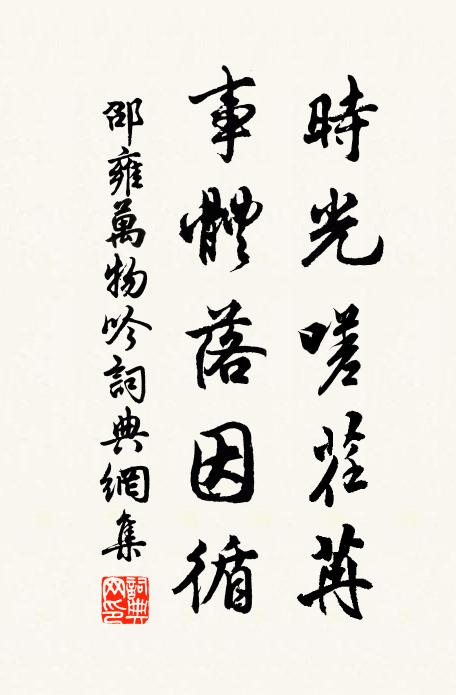 時光嗟荏苒
事體落因循
邵雍萬物吟詞典網集
詞典网印